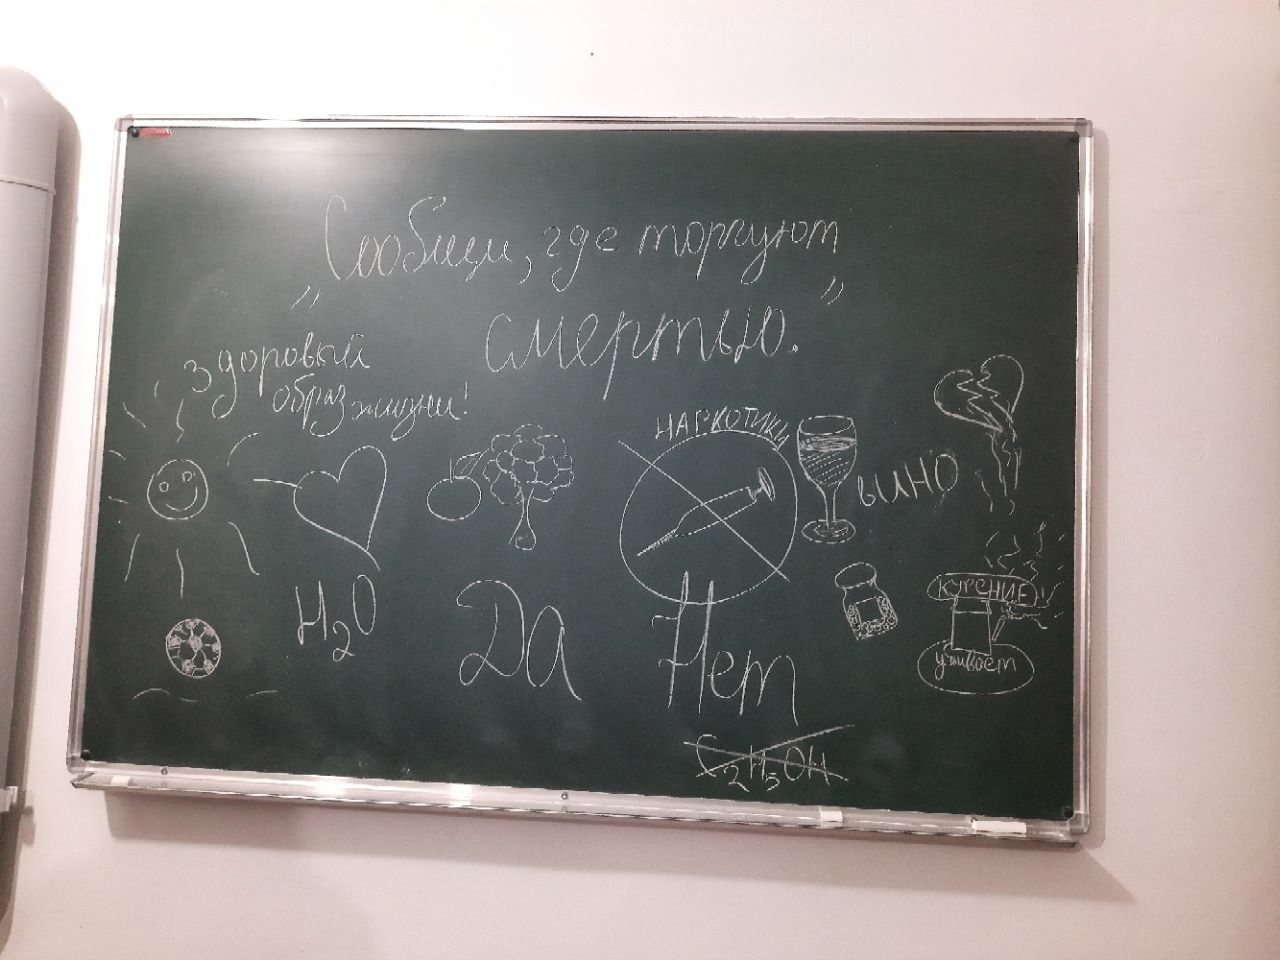 „Сообщи, где торгуют
смертью.”
здоровый
образ жизни!
НАРКОТИКИ
ВИНО
H₂O
Да
Нет
КУРЕНИЕ!
убивает
C₂H₅OH